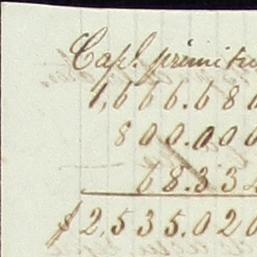 Capl. primitiv
1,666.688
800.000
68.332
$2,535.020